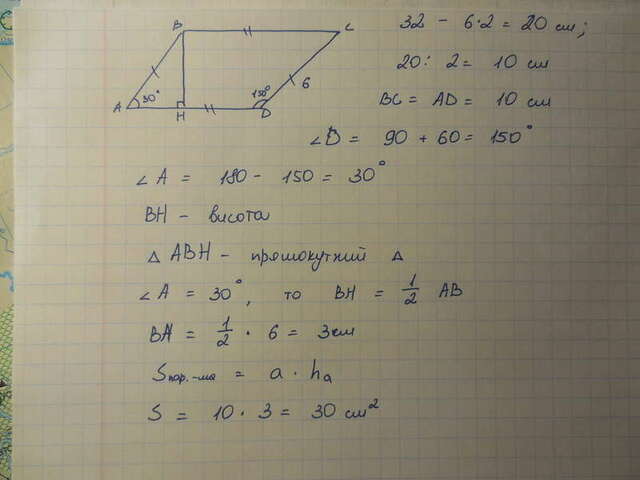 B C
32 - 6·2 = 20 см;
6
A 30° H 150° D
20 : 2 = 10 см
BC = AD = 10 см
∠D = 90 + 60 = 150°
∠A = 180 - 150 = 30°
BH - висота
△ ABH - прямокутний △
∠A = 30°, то BH = 1/2 AB
BH = 1/2 · 6 = 3 см
Sпар.-ма = a · ha
S = 10 · 3 = 30 см²